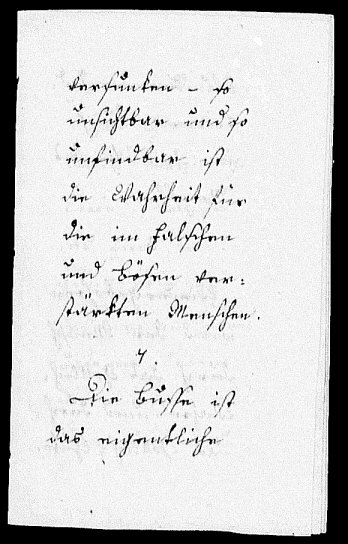 versunken – so
unsichtbar und so
unfindbar ist
die Wahrheit für
die im falschen
und bösen ver=
stärkten Menschen.
7.
Die Busse ist
das eigentliche